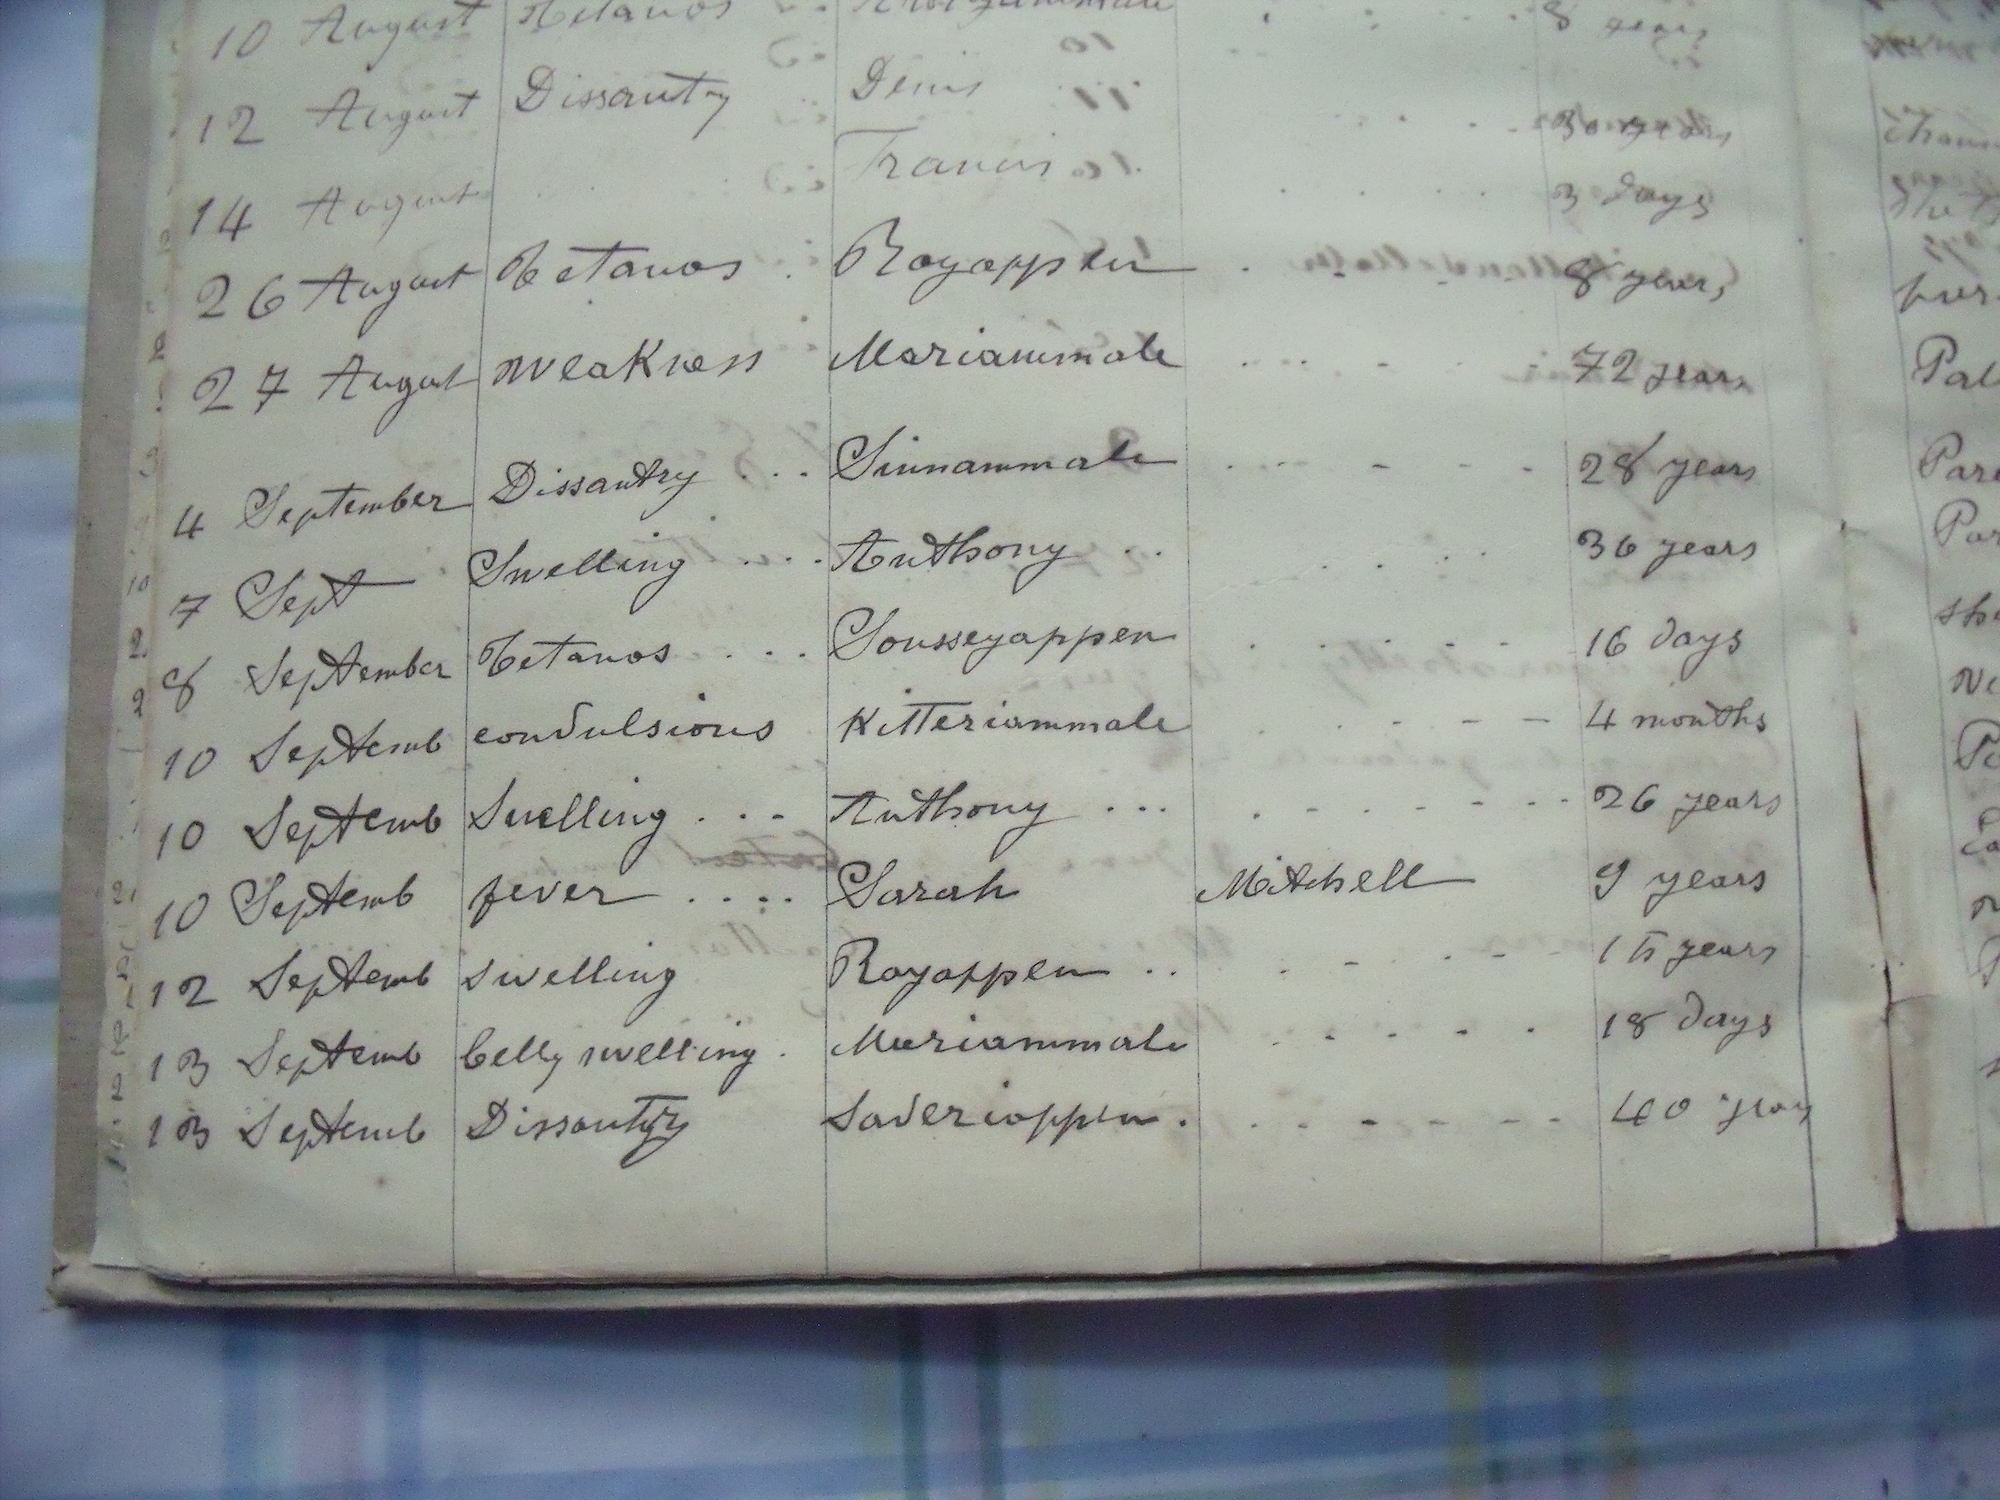 10 August Tetanos 8 years
12 August Dissantry Denis 30 years
14 August Francis 3 days
26 August Tetanos . Royappen . 8 years
27 August weakness Mariammale 72 years
4 September Dissantry ... Sinnammale 28 years
7 Sept Swelling ... Anthony .. 36 years
8 September Tetanos ... Sousseyappen 16 days
10 Septemb convulsions Kitteriammale 4 months
10 Septemb Swelling ... Anthony ... 26 years
10 Septemb fever .... Sarah Mitchell 9 years
12 Septemb swelling Royappen .. 15 years
13 Septemb belly swelling . Mariammale 18 days
13 Septemb Dissantry Saveriappen . 40 years